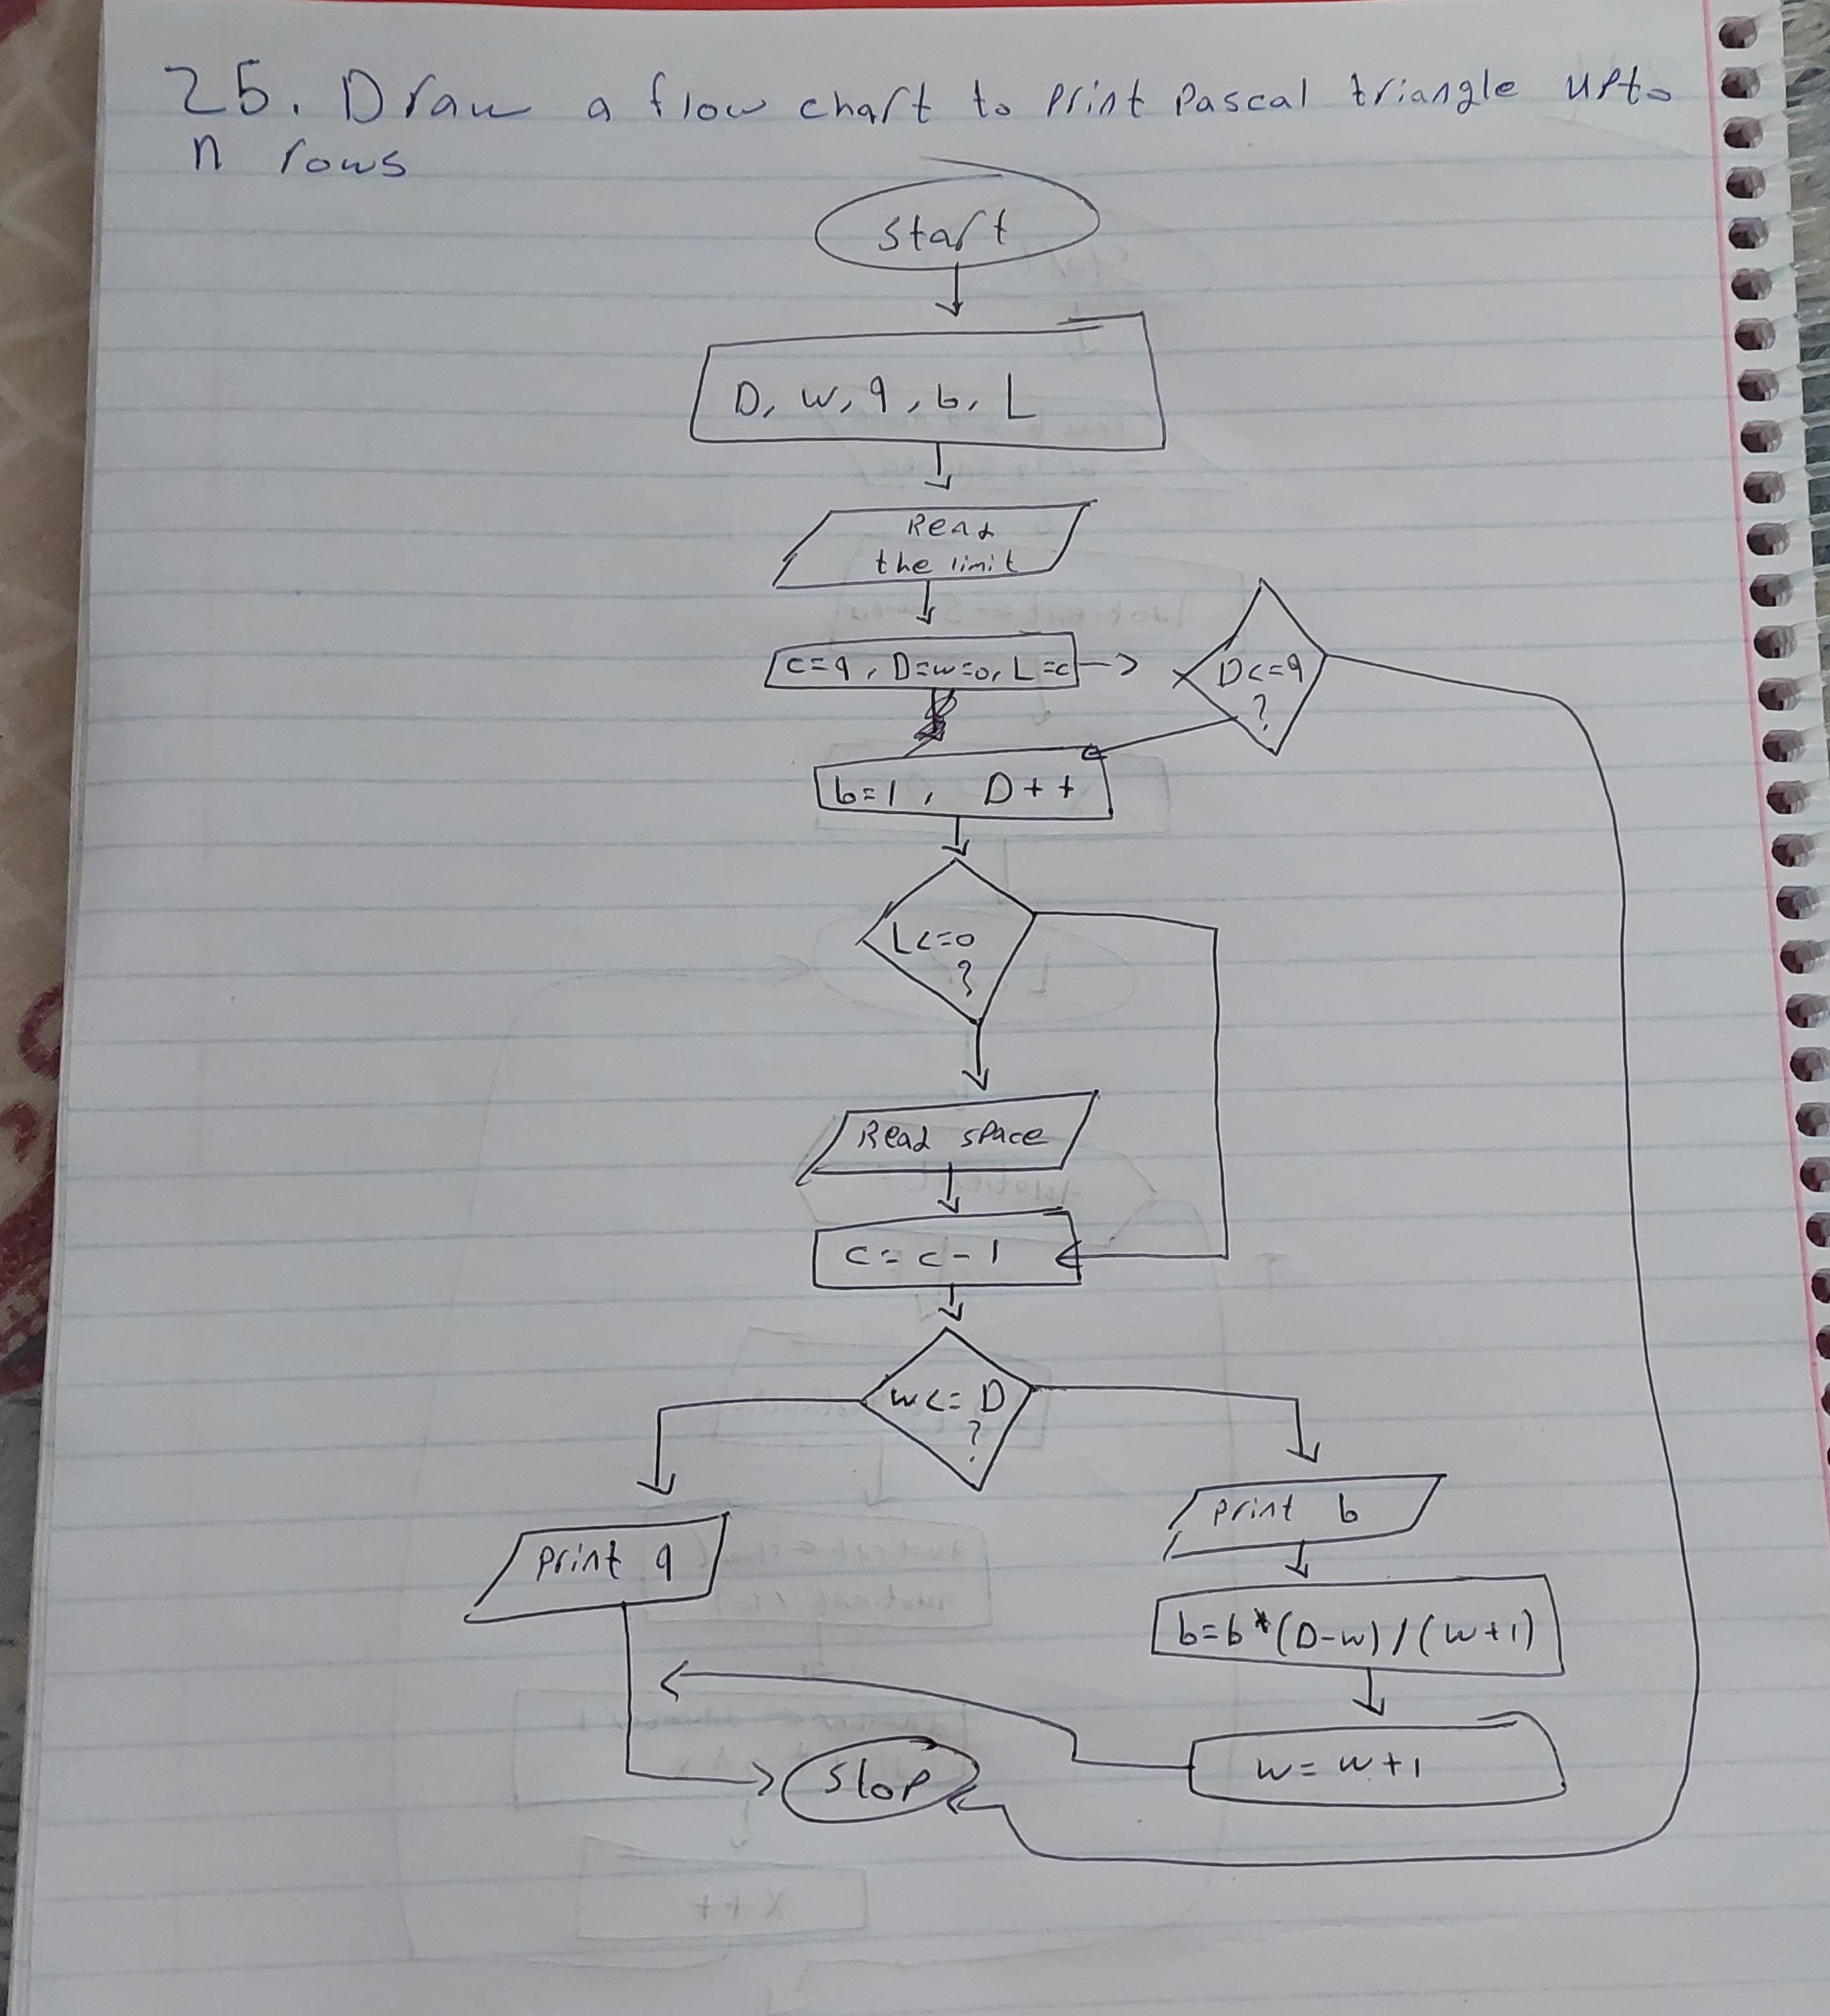 25. Draw a flow chart to print Pascal triangle upto
n rows
Start
D, w, q, b, L
Read
the limit
c=q, D=w=0, L=c
D<=q
?
b=1, D++
L<=0
?
Read space
c=c-1
w<=D
?
print q
print b
b=b*(D-w)/(w+1)
w=w+1
Stop